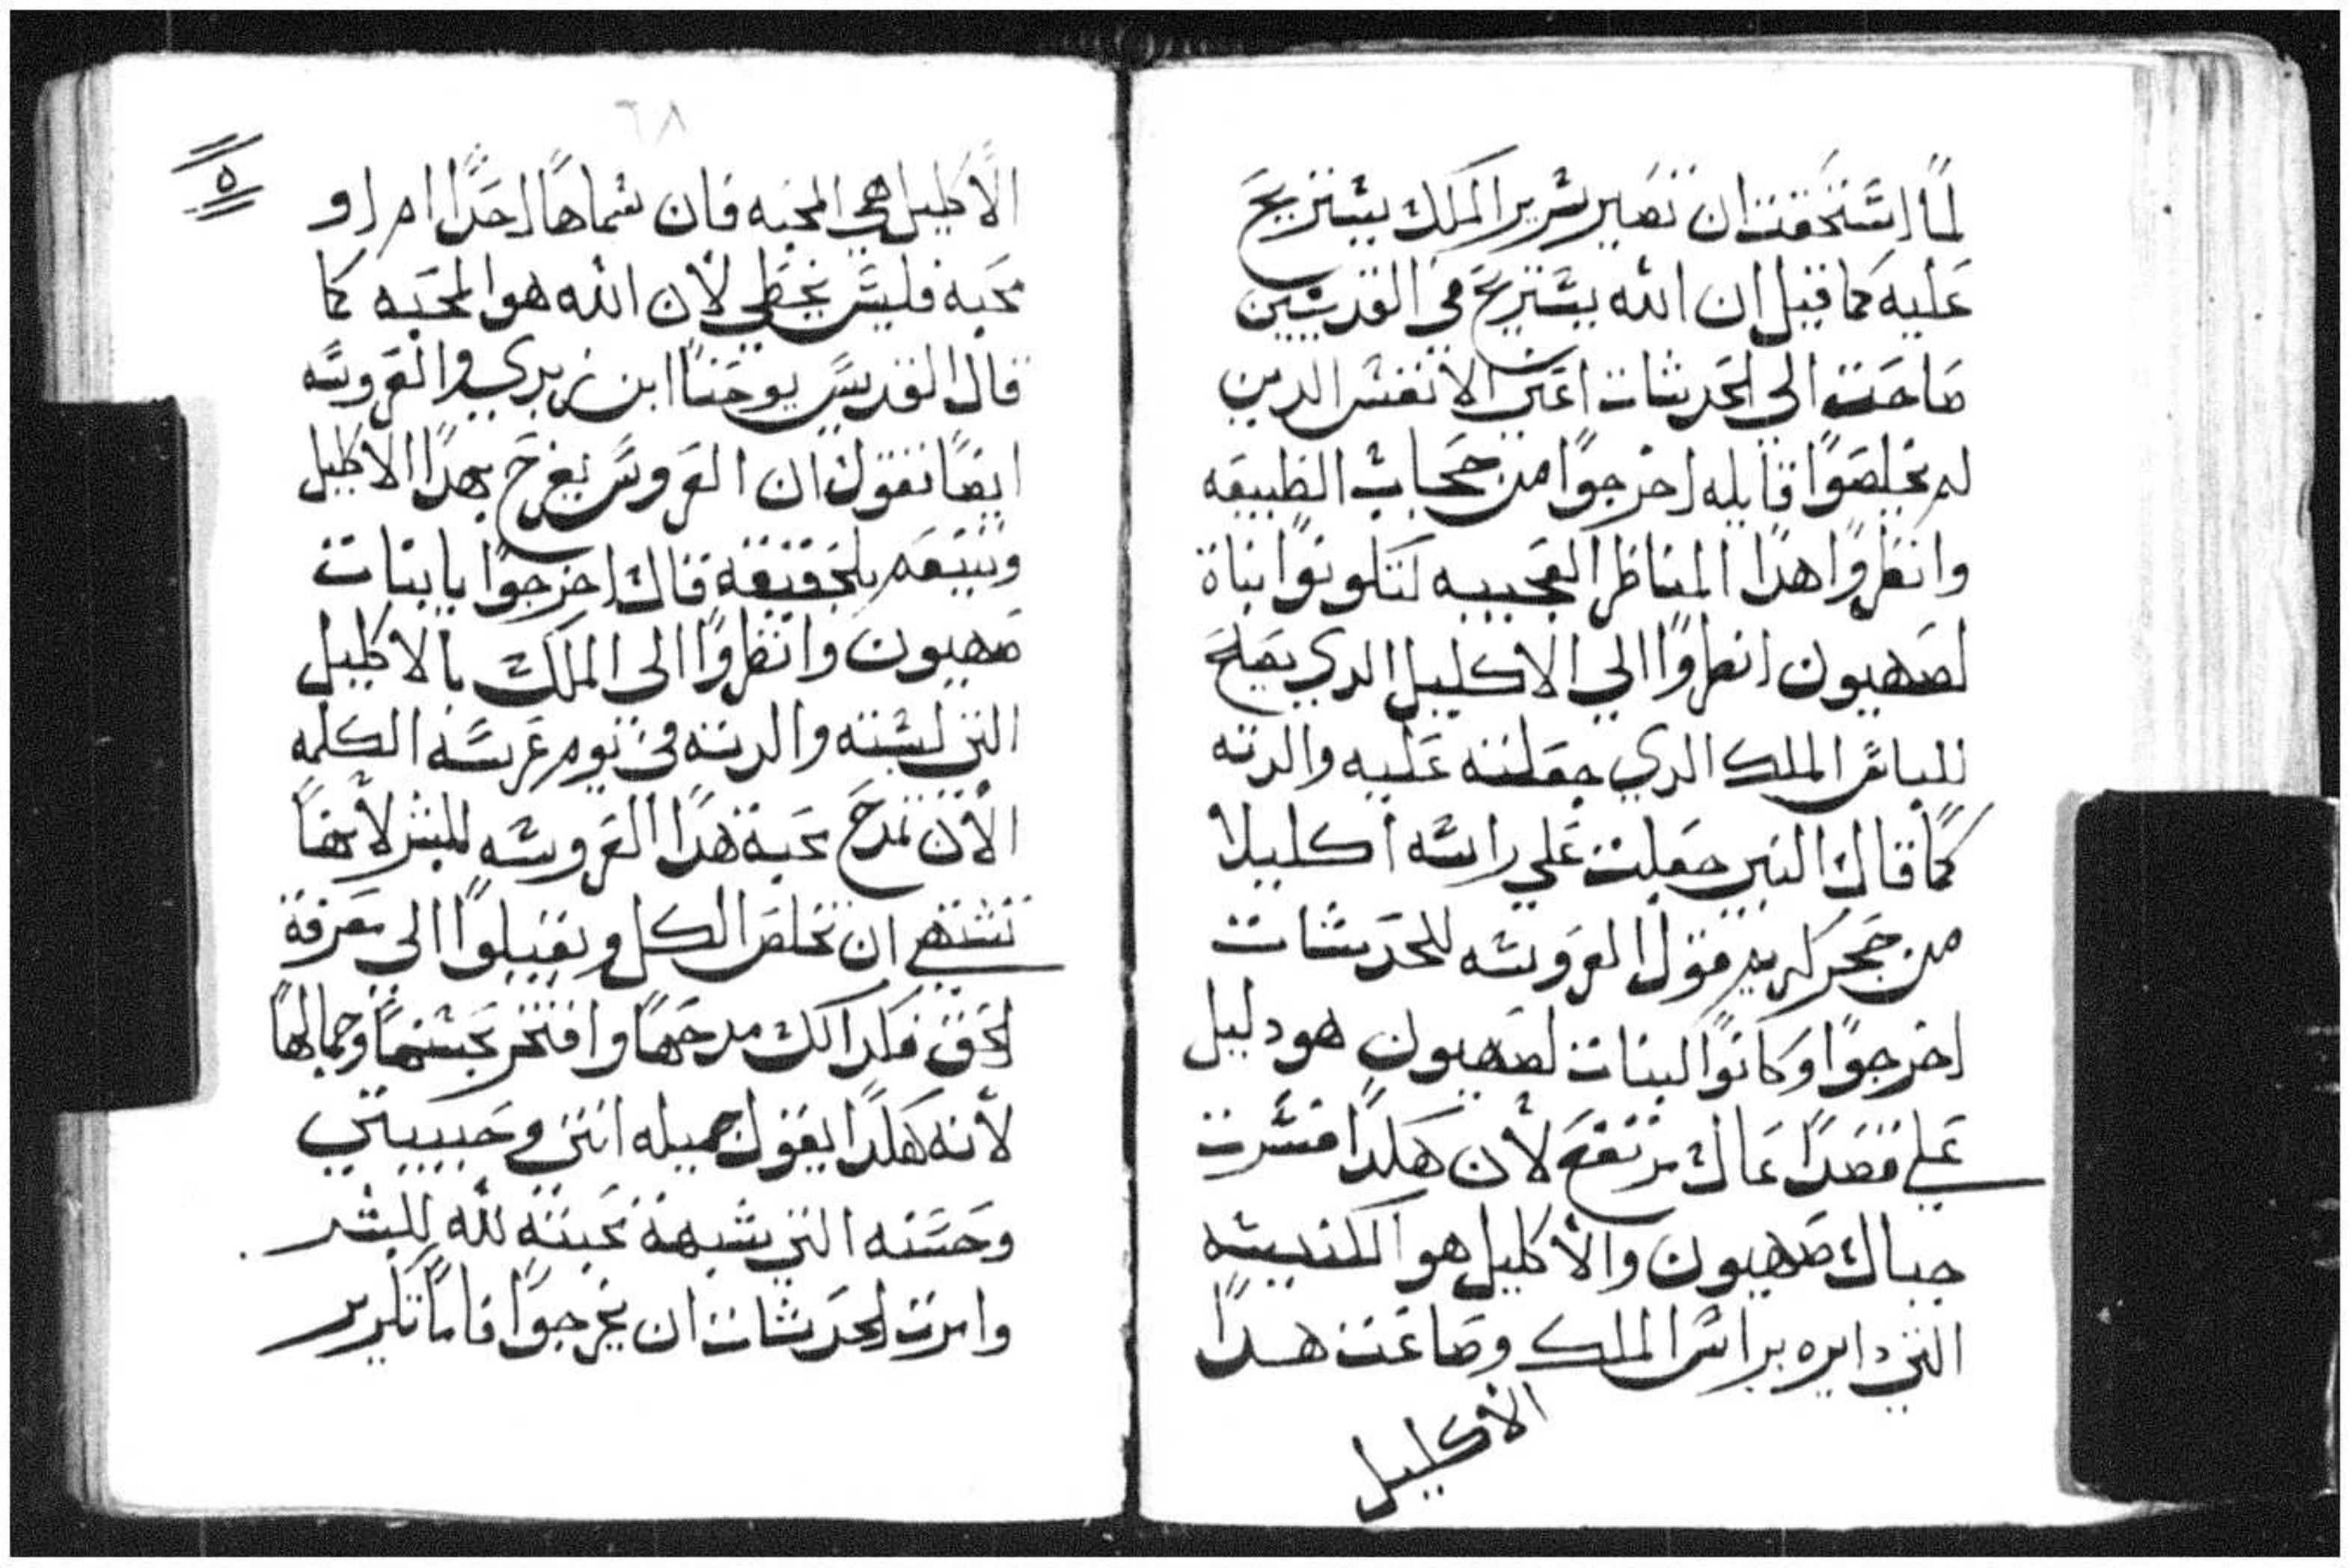 لما استحقت ان تصير سرير الملك يستريح
عليه كما قيل ان الله يستريح في القديسين
صاحت الى الحدثات اعني الانفس الدين
لم يخلصوا قايله اخرجوا من حجاب الطبيعه
وانظروا هدا المناظر العجيبه لتكونوا بناة
لصهيون انظروا الي الاكليل الدي يصلح
للباس الملك الدي جعلته عليه والدته
كما قال النبي جعلت علي راسه اكليلا
من حجر كريم فقول العروسه للحدثات
اخرجوا وكانوا البنات لصهيون هو دليل
علي قصدا عال مرتفع لأن هكدا فسرت
جبال صهيون والأكليل هو الكنيسه
التي دايره براس الملك وصاغت هدا
الأكليل
٦٨
٥
الأكليل هي المحبه فان سماها احدا ام او
محبه فليس يخطي لأن الله هو المحبه كما
قال القديس يوحنا ابن زبدي والعروسه
ايضا نقول ان العروس يفرح بهدا الاكليل
وتبيعه بلحقيقة قال اخرجوا يا بنات
صهيون وانظروا الى الملك بالاكليل
التي لبسته والدته في يوم عرسه الكلمه
الأن نمدح محبة هدا العروسه للبشر لأنها
تشتهي ان تخلص الكل ويقبلوا الي معرفة
الحق فلدالك مدحها وافتخر بحسنها وجمالها
لأنه هكدا يقول جميله انتي وحبيبتي
وحسنه التي شبهة محبته لله للبشر
وامرت الحدثات ان يخرجوا فاما تكرير